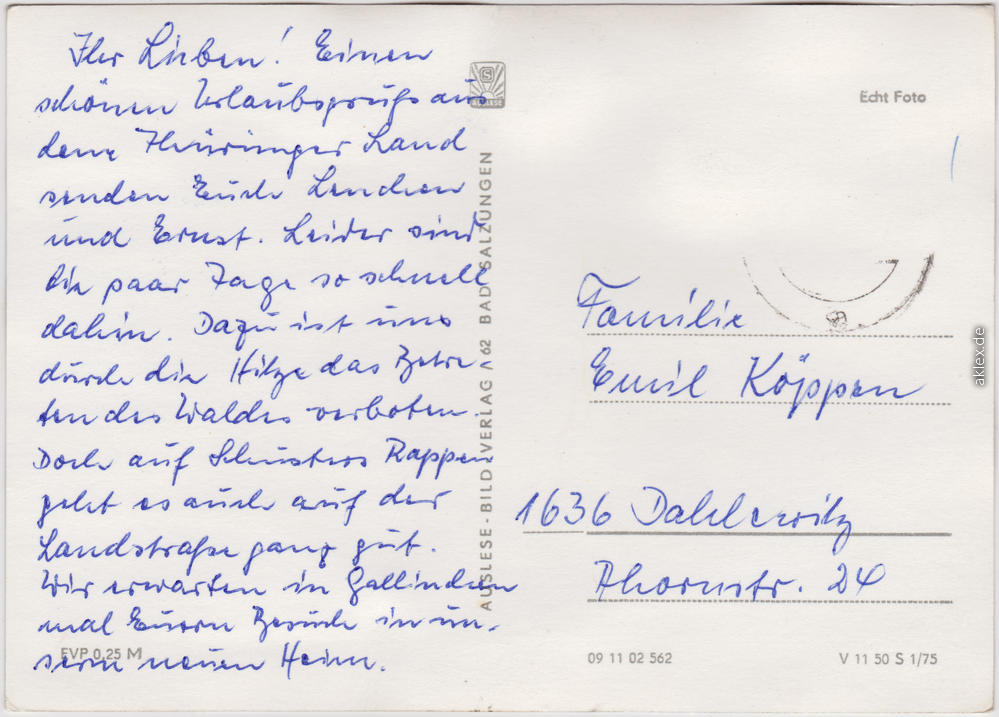 Ihr Lieben! Einen
schönen Urlaubsgruß aus
dem Thüringer Land
senden Euch Lenchen
und Ernst. Leider sind
die paar Tage so schnell
dahin. Dazu ist uns
durch die Hitze das Betre-
ten des Waldes verboten.
Doch auf Schusters Rappen
geht es auch auf der
Landstraße ganz gut.
Wir erwarten in Gallinchen
mal Euern Besuch in un-
serm neuen Heim.
EVP 0,25 M
AUSLESE
AUSLESE-BILD-VERLAG A 62 BAD SALZUNGEN
Echt Foto
Familie
Emil Köppen
1636 Dahlewitz
Ahornstr. 24
09 11 02 562
V 11 50 S 1/75
aklex.de